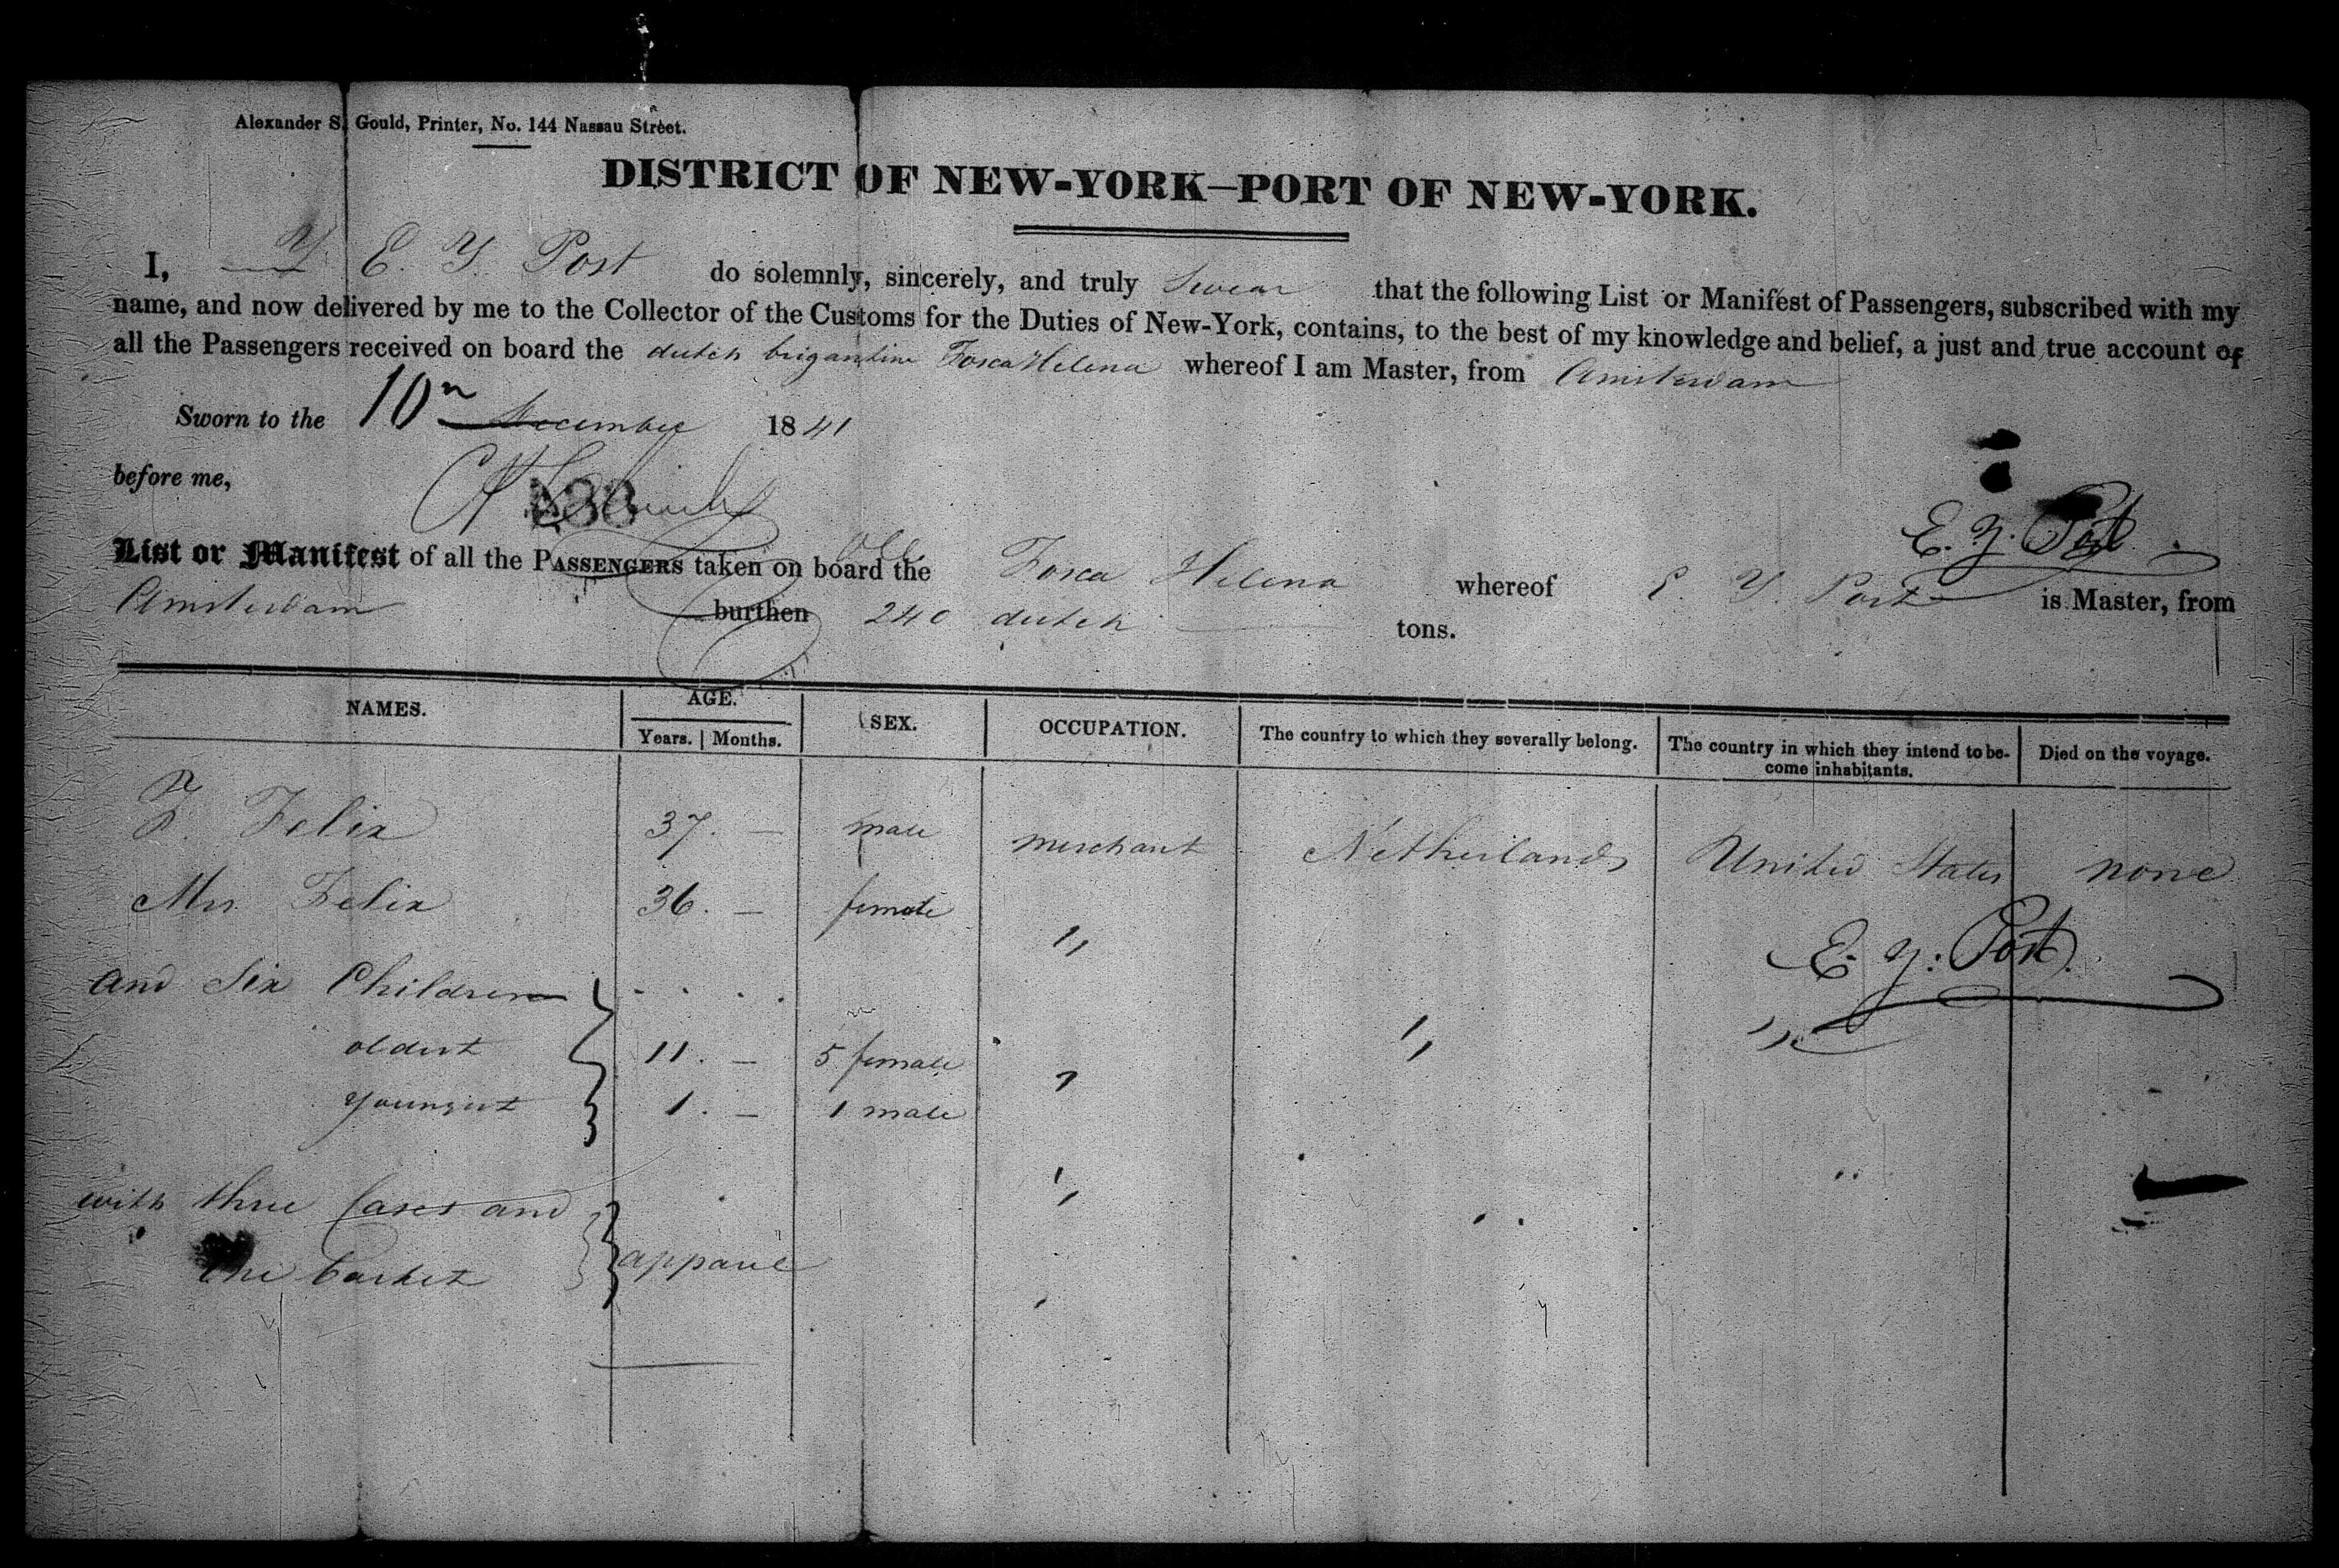 Alexander S. Gould, Printer, No. 144 Nassau Street.
DISTRICT OF NEW-YORK—PORT OF NEW-YORK.
I, E. Y. Post do solemnly, sincerely, and truly swear that the following List or Manifest of Passengers, subscribed with my
name, and now delivered by me to the Collector of the Customs for the Duties of New-York, contains, to the best of my knowledge and belief, a just and true account of
all the Passengers received on board the dutch brigantine Fosca Helena whereof I am Master, from Amsterdam
Sworn to the 10th December 1841
before me,
E. Y. Post
List or Manifest of all the PASSENGERS taken on board the Fosca Helena whereof E. Y. Post is Master, from
Amsterdam burthen 240 dutch tons.
NAMES. AGE. SEX. OCCUPATION. The country to which they severally belong. The country in which they intend to be- Died on the voyage.
Years. Months. come inhabitants.
F. Felix 37. — male merchant Netherlands United States none
Mrs Felix 36. — female "
E. Y. Post
and Six Children
oldest 11. — 5 female " "
youngest 1. — 1 male
with three Cases and
one basket apparel